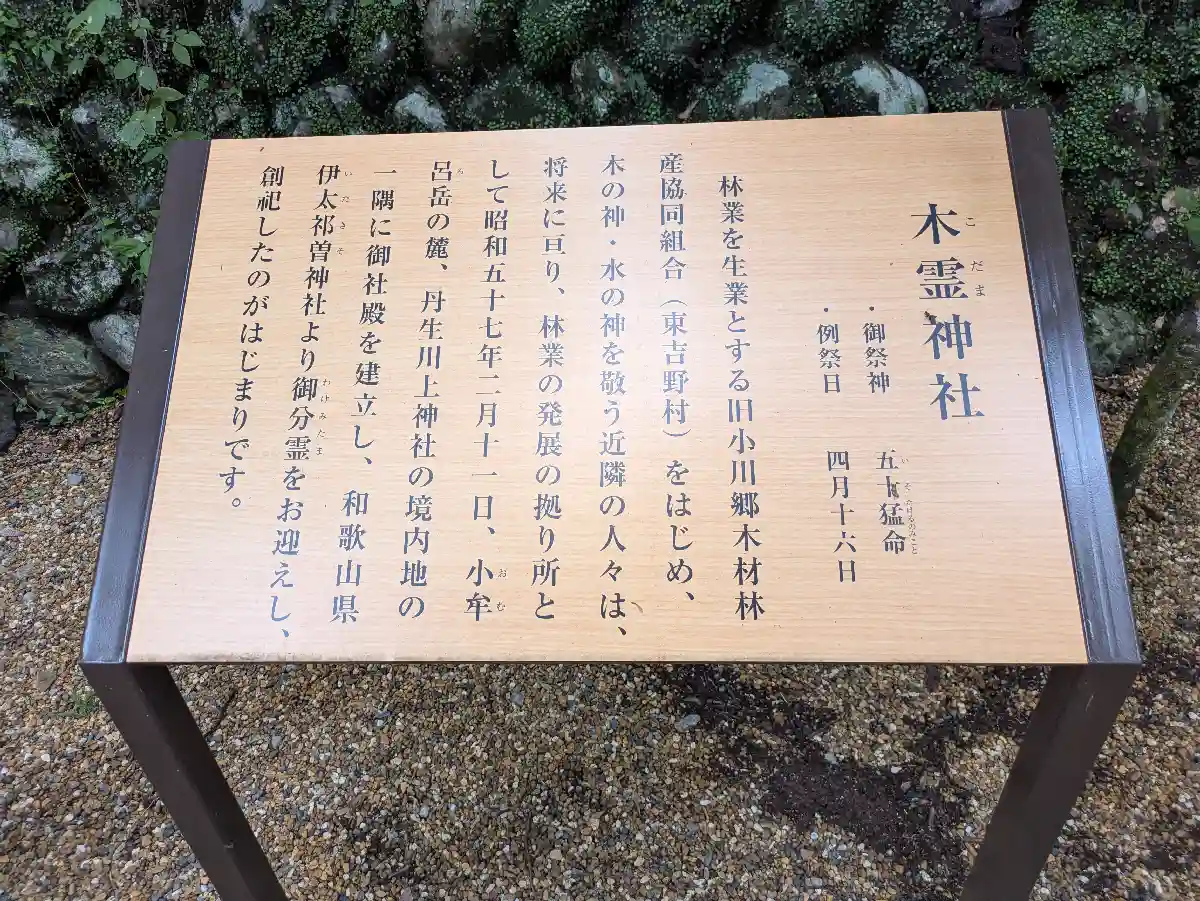 木霊神社
こだま
・御祭神　五十猛命
いそたけるのみこと
・例祭日　四月十六日
林業を生業とする旧小川郷木材林
産協同組合（東吉野村）をはじめ、
木の神・水の神を敬う近隣の人々は、
将来に亘り、林業の発展の拠り所と
して昭和五十七年二月十一日、小牟
おむ
呂岳の麓、丹生川上神社の境内地の
ろ
一隅に御社殿を建立し、和歌山県
伊太祁曽神社より御分霊をお迎えし、
いたきそ　わけみたま
創祀したのがはじまりです。